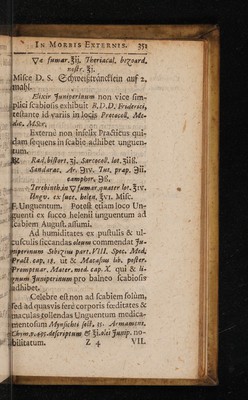 IN MORBIS EXTERNIS. 351
▽a fumar. ℥ij. Theriacal. bezoard.
noſtr. ℥i.
Miſce D. S. Schweißträncklein auf 2.
mahl.
Elixir Juniperinum non vice ſim-
plici ſcabioſis exhibuit R.D.D. Friderici,
teſtante id variis in locis Protocoll. Me-
dic. MScr.
Externè non infelix Practicus qui-
dam ſequens in ſcabie adhibet unguen-
tum.
℞ Rad. biſtort. ʒj. Sarcocoll. lot. ʒiiß.
Sandarac. Ar. ℈iv. Tut. præp. ℈ij.
camphor. ℈ß.
Terebinth. in ▽ fumar. quater lot. ʒiv.
Ungv. ex ſucc. helen. ʒvi. Miſc.
F. Unguentum. Poteſt etiam loco Un-
guenti ex ſucco helenii unguentum ad
ſcabiem Auguſt. aſſumi.
Ad humiditates ex puſtulis & ul-
cuſculis ſiccandas oleum commendat Ju-
niperinum Sebizius part. VIII. Spec. Med.
Pract. cap. 18. ut & Macaſius lib. poſter.
Promptuar. Mater. med. cap. X. qui & li-
gnum Juniperinum pro balneo ſcabioſis
adhibet.
Celebre eſt non ad ſcabiem ſolùm,
ſed ad quasvis ferè corporis fœditates &
maculas tollendas Unguentum medica-
mentoſum Mynſicht ſect. 11. Armament.
Chim. p. 495. deſcriptum & ℥i. olei Junip. no-
bilitatum. Z 4 VII.